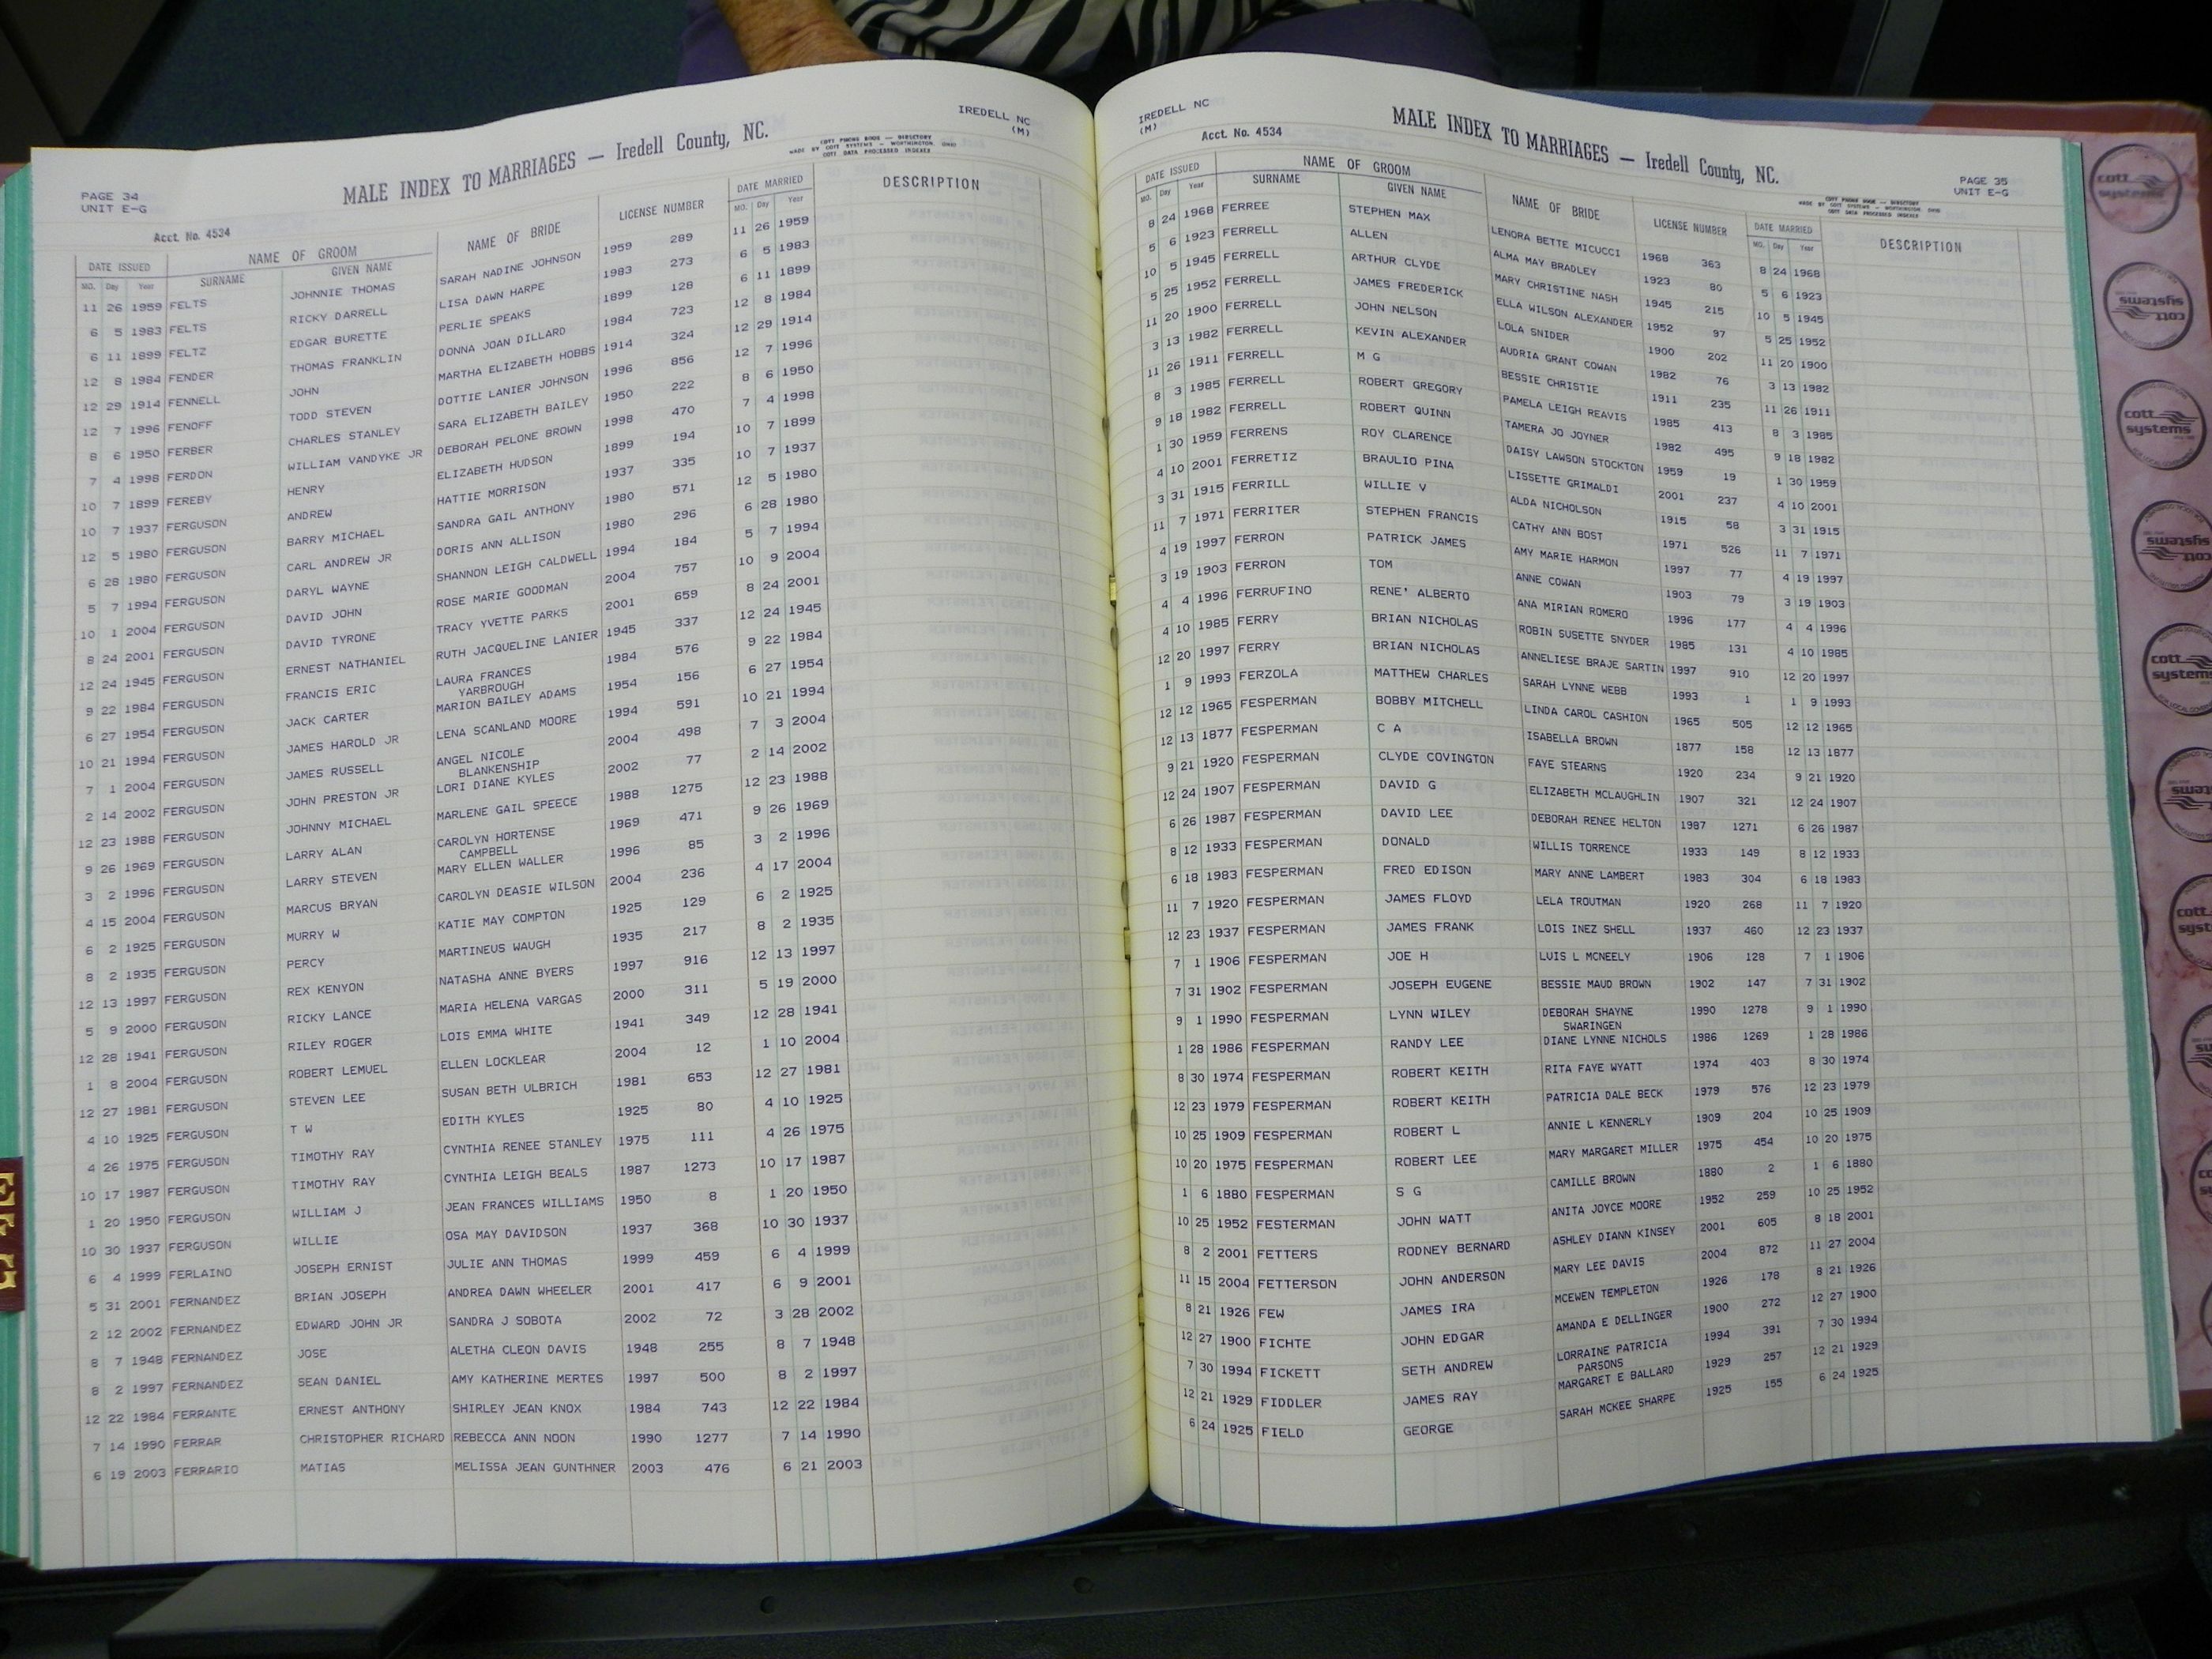 PAGE 34
UNIT E-G
MALE INDEX TO MARRIAGES — Iredell County, NC.
IREDELL NC
(M)
COTT PHONE BOOK — DIRECTORY
MADE BY COTT SYSTEMS — WORTHINGTON, OHIO
COTT DATA PROCESSED INDEXES
Acct. No. 4534
DATE ISSUED NAME OF GROOM NAME OF BRIDE LICENSE NUMBER DATE MARRIED DESCRIPTION
MO. Day Year SURNAME GIVEN NAME MO. Day Year
11 26 1959 FELTS JOHNNIE THOMAS SARAH NADINE JOHNSON 1959 289 11 26 1959
6 5 1983 FELTS RICKY DARRELL LISA DAWN HARPE 1983 273 6 5 1983
6 11 1899 FELTZ EDGAR BURETTE PERLIE SPEAKS 1899 128 6 11 1899
12 8 1984 FENDER THOMAS FRANKLIN DONNA JOAN DILLARD 1984 723 12 8 1984
12 29 1914 FENNELL JOHN MARTHA ELIZABETH HOBBS 1914 324 12 29 1914
12 7 1996 FENOFF TODD STEVEN DOTTIE LANIER JOHNSON 1996 856 12 7 1996
8 6 1950 FERBER CHARLES STANLEY SARA ELIZABETH BAILEY 1950 222 8 6 1950
7 4 1998 FERDON WILLIAM VANDYKE JR DEBORAH PELONE BROWN 1998 470 7 4 1998
10 7 1899 FEREBY HENRY ELIZABETH HUDSON 1899 194 10 7 1899
10 7 1937 FERGUSON ANDREW HATTIE MORRISON 1937 335 10 7 1937
12 5 1980 FERGUSON BARRY MICHAEL SANDRA GAIL ANTHONY 1980 571 12 5 1980
6 28 1980 FERGUSON CARL ANDREW JR DORIS ANN ALLISON 1980 296 6 28 1980
5 7 1994 FERGUSON DARYL WAYNE SHANNON LEIGH CALDWELL 1994 184 5 7 1994
10 1 2004 FERGUSON DAVID JOHN ROSE MARIE GOODMAN 2004 757 10 9 2004
8 24 2001 FERGUSON DAVID TYRONE TRACY YVETTE PARKS 2001 659 8 24 2001
12 24 1945 FERGUSON ERNEST NATHANIEL RUTH JACQUELINE LANIER 1945 337 12 24 1945
9 22 1984 FERGUSON FRANCIS ERIC LAURA FRANCES 1984 576 9 22 1984
YARBROUGH
6 27 1954 FERGUSON JACK CARTER MARION BAILEY ADAMS 1954 156 6 27 1954
10 21 1994 FERGUSON JAMES HAROLD JR LENA SCANLAND MOORE 1994 591 10 21 1994
7 1 2004 FERGUSON JAMES RUSSELL ANGEL NICOLE 2004 498 7 3 2004
BLANKENSHIP
2 14 2002 FERGUSON JOHN PRESTON JR LORI DIANE KYLES 2002 77 2 14 2002
12 23 1988 FERGUSON JOHNNY MICHAEL MARLENE GAIL SPEECE 1988 1275 12 23 1988
9 26 1969 FERGUSON LARRY ALAN CAROLYN HORTENSE 1969 471 9 26 1969
CAMPBELL
3 2 1996 FERGUSON LARRY STEVEN MARY ELLEN WALLER 1996 85 3 2 1996
4 15 2004 FERGUSON MARCUS BRYAN CAROLYN DEASIE WILSON 2004 236 4 17 2004
6 2 1925 FERGUSON MURRY W KATIE MAY COMPTON 1925 129 6 2 1925
8 2 1935 FERGUSON PERCY MARTINEUS WAUGH 1935 217 8 2 1935
12 13 1997 FERGUSON REX KENYON NATASHA ANNE BYERS 1997 916 12 13 1997
5 9 2000 FERGUSON RICKY LANCE MARIA HELENA VARGAS 2000 311 5 19 2000
12 28 1941 FERGUSON RILEY ROGER LOIS EMMA WHITE 1941 349 12 28 1941
1 8 2004 FERGUSON ROBERT LEMUEL ELLEN LOCKLEAR 2004 12 1 10 2004
12 27 1981 FERGUSON STEVEN LEE SUSAN BETH ULBRICH 1981 653 12 27 1981
4 10 1925 FERGUSON T W EDITH KYLES 1925 80 4 10 1925
4 26 1975 FERGUSON TIMOTHY RAY CYNTHIA RENEE STANLEY 1975 111 4 26 1975
10 17 1987 FERGUSON TIMOTHY RAY CYNTHIA LEIGH BEALS 1987 1273 10 17 1987
1 20 1950 FERGUSON WILLIAM J JEAN FRANCES WILLIAMS 1950 8 1 20 1950
10 30 1937 FERGUSON WILLIE OSA MAY DAVIDSON 1937 368 10 30 1937
6 4 1999 FERLAINO JOSEPH ERNIST JULIE ANN THOMAS 1999 459 6 4 1999
5 31 2001 FERNANDEZ BRIAN JOSEPH ANDREA DAWN WHEELER 2001 417 6 9 2001
2 12 2002 FERNANDEZ EDWARD JOHN JR SANDRA J SOBOTA 2002 72 3 28 2002
8 7 1948 FERNANDEZ JOSE ALETHA CLEON DAVIS 1948 255 8 7 1948
8 2 1997 FERNANDEZ SEAN DANIEL AMY KATHERINE MERTES 1997 500 8 2 1997
12 22 1984 FERRANTE ERNEST ANTHONY SHIRLEY JEAN KNOX 1984 743 12 22 1984
7 14 1990 FERRAR CHRISTOPHER RICHARD REBECCA ANN NOON 1990 1277 7 14 1990
6 19 2003 FERRARIO MATIAS MELISSA JEAN GUNTHNER 2003 476 6 21 2003
IREDELL NC
(M)
Acct. No. 4534
MALE INDEX TO MARRIAGES — Iredell County, NC.
PAGE 35
UNIT E-G
COTT PHONE BOOK — DIRECTORY
MADE BY COTT SYSTEMS — WORTHINGTON, OHIO
COTT DATA PROCESSED INDEXES
DATE ISSUED NAME OF GROOM NAME OF BRIDE LICENSE NUMBER DATE MARRIED DESCRIPTION
MO. Day Year SURNAME GIVEN NAME MO. Day Year
8 24 1968 FERREE STEPHEN MAX LENORA BETTE MICUCCI 1968 363 8 24 1968
5 6 1923 FERRELL ALLEN ALMA MAY BRADLEY 1923 80 5 6 1923
10 5 1945 FERRELL ARTHUR CLYDE MARY CHRISTINE NASH 1945 215 10 5 1945
5 25 1952 FERRELL JAMES FREDERICK ELLA WILSON ALEXANDER 1952 97 5 25 1952
11 20 1900 FERRELL JOHN NELSON LOLA SNIDER 1900 202 11 20 1900
3 13 1982 FERRELL KEVIN ALEXANDER AUDRIA GRANT COWAN 1982 76 3 13 1982
11 26 1911 FERRELL M G BESSIE CHRISTIE 1911 235 11 26 1911
8 3 1985 FERRELL ROBERT GREGORY PAMELA LEIGH REAVIS 1985 413 8 3 1985
9 18 1982 FERRELL ROBERT QUINN TAMERA JO JOYNER 1982 495 9 18 1982
1 30 1959 FERRENS ROY CLARENCE DAISY LAWSON STOCKTON 1959 19 1 30 1959
4 10 2001 FERRETIZ BRAULIO PINA LISSETTE GRIMALDI 2001 237 4 10 2001
3 31 1915 FERRILL WILLIE V ALDA NICHOLSON 1915 58 3 31 1915
11 7 1971 FERRITER STEPHEN FRANCIS CATHY ANN BOST 1971 526 11 7 1971
4 19 1997 FERRON PATRICK JAMES AMY MARIE HARMON 1997 77 4 19 1997
3 19 1903 FERRON TOM ANNE COWAN 1903 79 3 19 1903
4 4 1996 FERRUFINO RENE' ALBERTO ANA MIRIAN ROMERO 1996 177 4 4 1996
4 10 1985 FERRY BRIAN NICHOLAS ROBIN SUSETTE SNYDER 1985 131 4 10 1985
12 20 1997 FERRY BRIAN NICHOLAS ANNELIESE BRAJE SARTIN 1997 910 12 20 1997
1 9 1993 FERZOLA MATTHEW CHARLES SARAH LYNNE WEBB 1993 1 1 9 1993
12 12 1965 FESPERMAN BOBBY MITCHELL LINDA CAROL CASHION 1965 505 12 12 1965
12 13 1877 FESPERMAN C A ISABELLA BROWN 1877 158 12 13 1877
9 21 1920 FESPERMAN CLYDE COVINGTON FAYE STEARNS 1920 234 9 21 1920
12 24 1907 FESPERMAN DAVID G ELIZABETH MCLAUGHLIN 1907 321 12 24 1907
6 26 1987 FESPERMAN DAVID LEE DEBORAH RENEE HELTON 1987 1271 6 26 1987
8 12 1933 FESPERMAN DONALD WILLIS TORRENCE 1933 149 8 12 1933
6 18 1983 FESPERMAN FRED EDISON MARY ANNE LAMBERT 1983 304 6 18 1983
11 7 1920 FESPERMAN JAMES FLOYD LELA TROUTMAN 1920 268 11 7 1920
12 23 1937 FESPERMAN JAMES FRANK LOIS INEZ SHELL 1937 460 12 23 1937
7 1 1906 FESPERMAN JOE H LUIS L MCNEELY 1906 128 7 1 1906
7 31 1902 FESPERMAN JOSEPH EUGENE BESSIE MAUD BROWN 1902 147 7 31 1902
9 1 1990 FESPERMAN LYNN WILEY DEBORAH SHAYNE 1990 1278 9 1 1990
SWARINGEN
1 28 1986 FESPERMAN RANDY LEE DIANE LYNNE NICHOLS 1986 1269 1 28 1986
8 30 1974 FESPERMAN ROBERT KEITH RITA FAYE WYATT 1974 403 8 30 1974
12 23 1979 FESPERMAN ROBERT KEITH PATRICIA DALE BECK 1979 576 12 23 1979
10 25 1909 FESPERMAN ROBERT L ANNIE L KENNERLY 1909 204 10 25 1909
10 20 1975 FESPERMAN ROBERT LEE MARY MARGARET MILLER 1975 454 10 20 1975
1 6 1880 FESPERMAN S G CAMILLE BROWN 1880 2 1 6 1880
10 25 1952 FESTERMAN JOHN WATT ANITA JOYCE MOORE 1952 259 10 25 1952
8 2 2001 FETTERS RODNEY BERNARD ASHLEY DIANN KINSEY 2001 605 8 18 2001
11 15 2004 FETTERSON JOHN ANDERSON MARY LEE DAVIS 2004 872 11 27 2004
8 21 1926 FEW JAMES IRA MCEWEN TEMPLETON 1926 178 8 21 1926
12 27 1900 FICHTE JOHN EDGAR AMANDA E DELLINGER 1900 272 12 27 1900
7 30 1994 FICKETT SETH ANDREW LORRAINE PATRICIA 1994 391 7 30 1994
PARSONS
12 21 1929 FIDDLER JAMES RAY MARGARET E BALLARD 1929 257 12 21 1929
6 24 1925 FIELD GEORGE SARAH MCKEE SHARPE 1925 155 6 24 1925
E-F-G
cott
systems
cott
systems
cott
systems
cott
systems
cott
systems